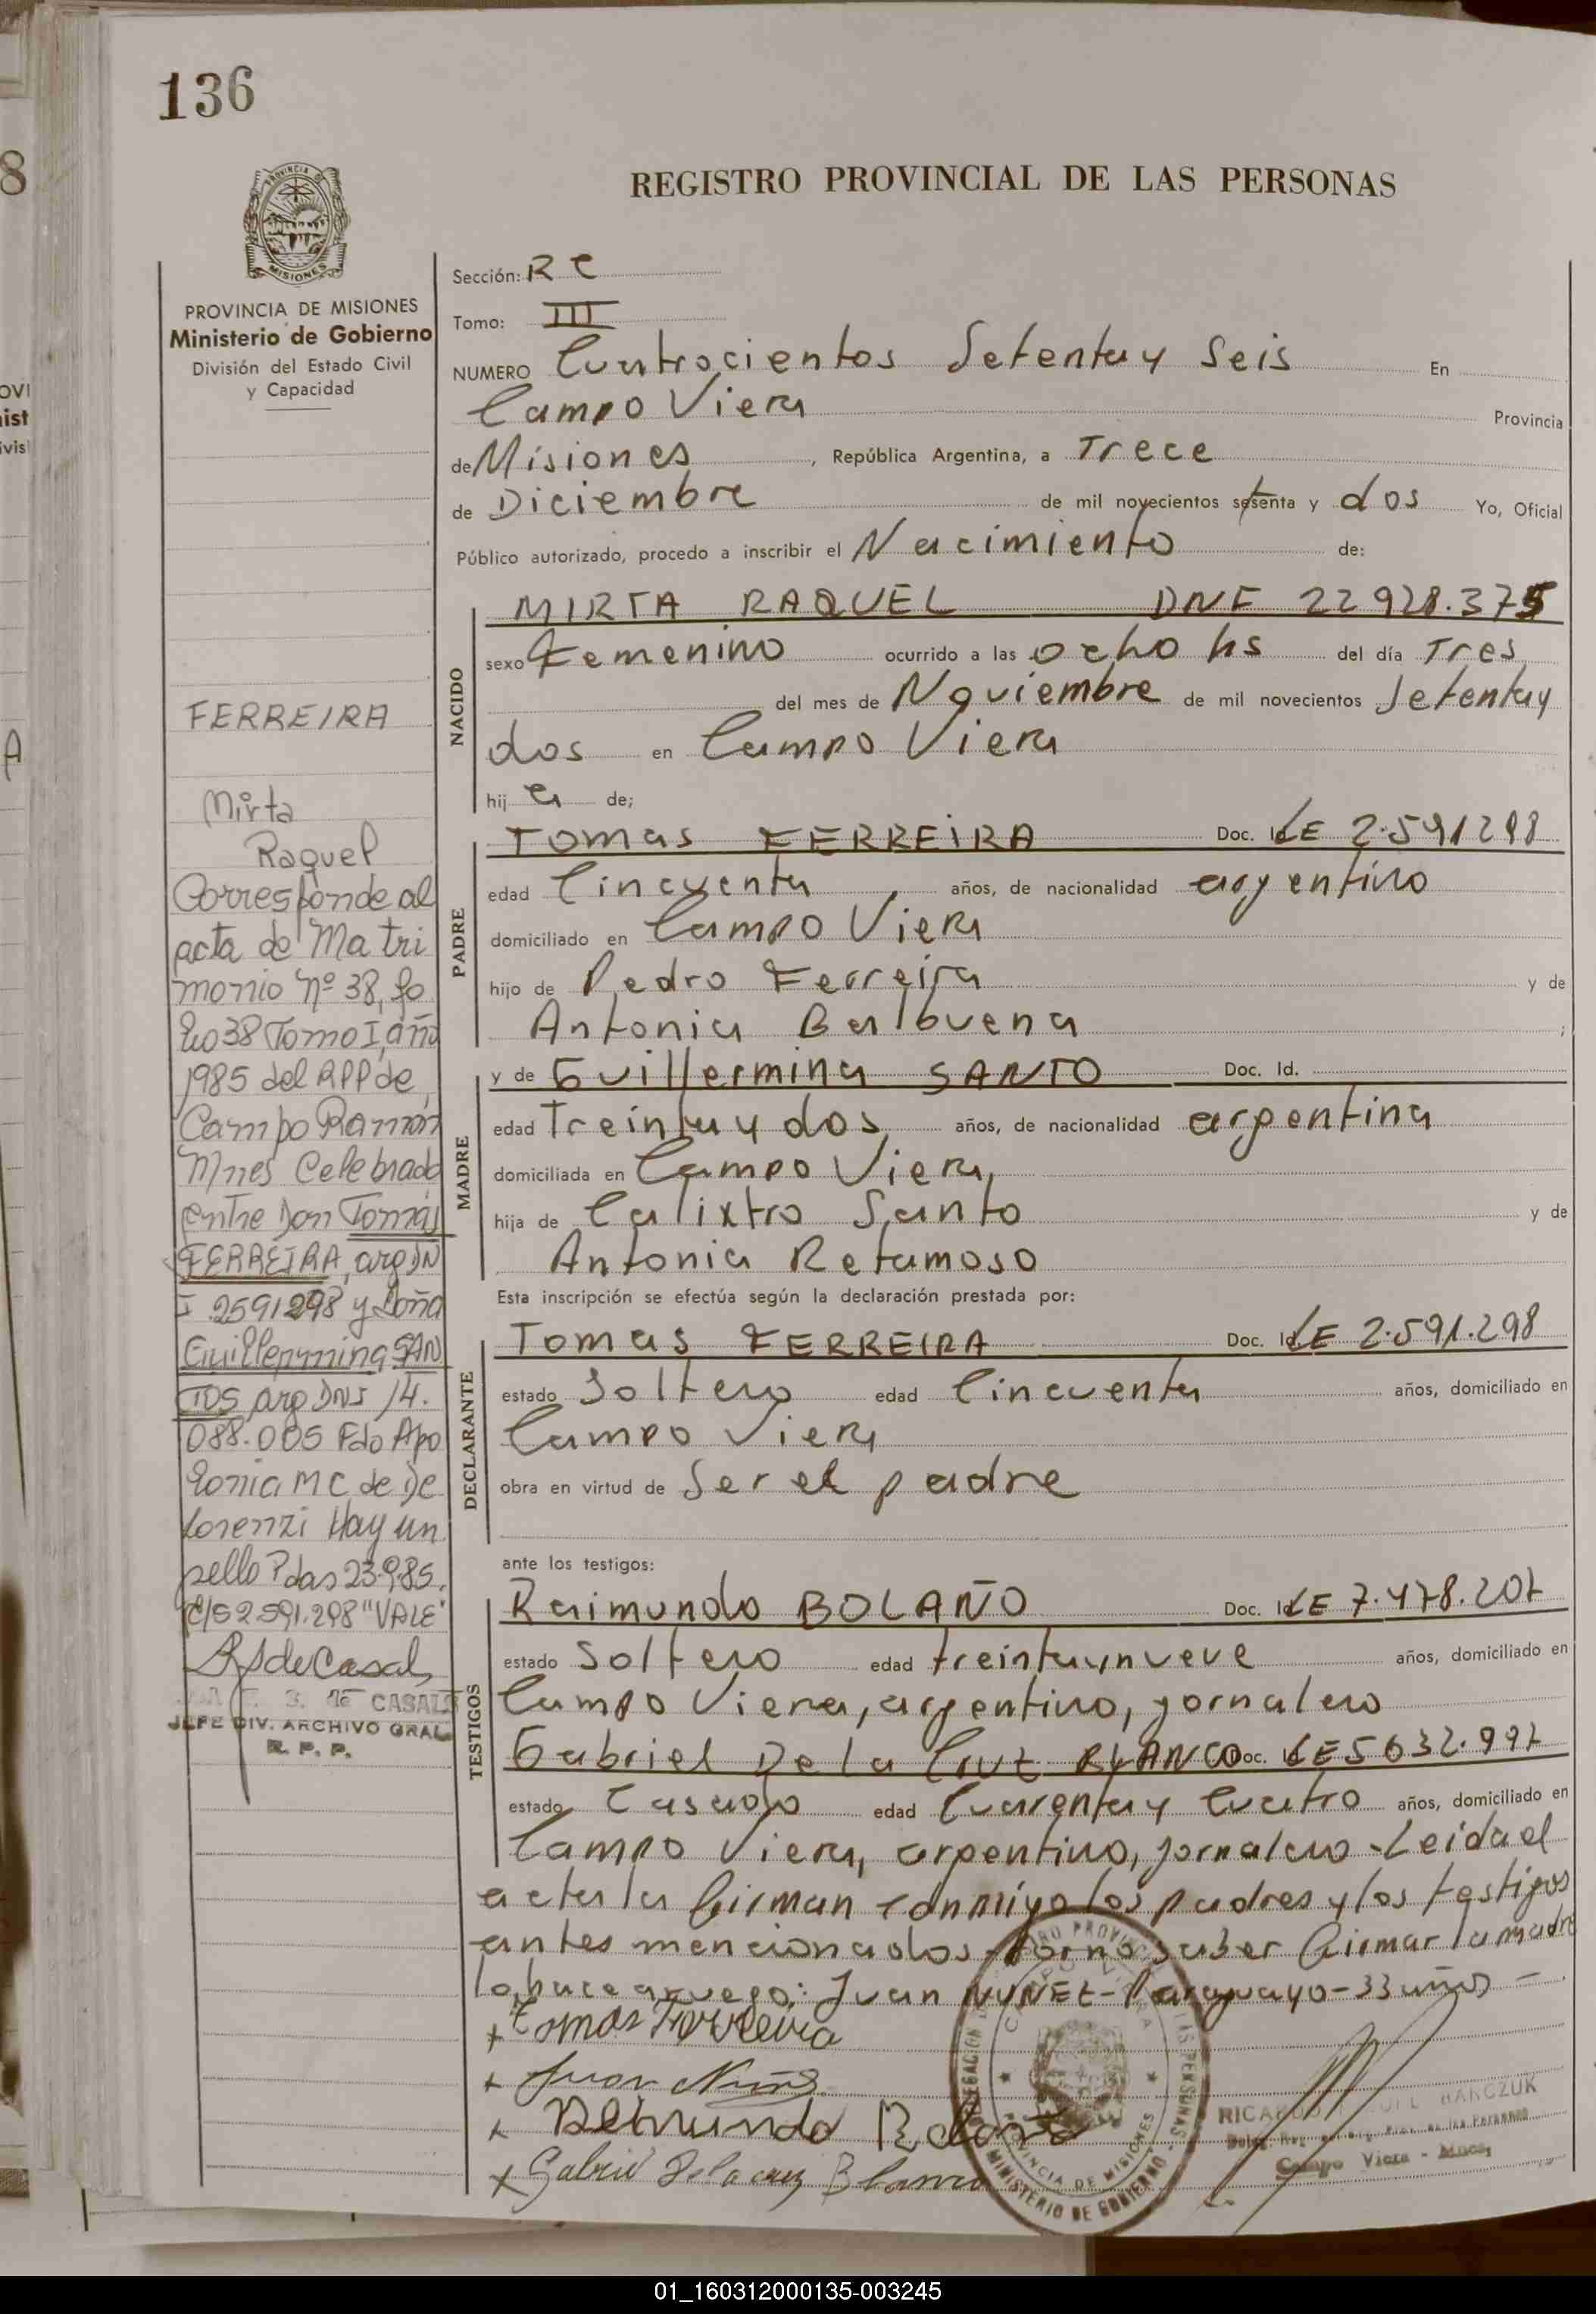 136
REGISTRO PROVINCIAL DE LAS PERSONAS
PROVINCIA DE MISIONES
Ministerio de Gobierno
División del Estado Civil
y Capacidad
Sección: RC
Tomo: III
NUMERO Cuatrocientos Setenta y Seis En
Campo Viera Provincia
de Misiones, República Argentina, a Trece
de Diciembre de mil novecientos setenta y dos Yo, Oficial
Público autorizado, procedo a inscribir el Nacimiento de:
NACIDO
MIRTA RAQUEL DNF 22928.375
sexo Femenino ocurrido a las ocho hs del día Tres
del mes de Noviembre de mil novecientos Setenta y
dos en Campo Viera
hij a de;
PADRE
Tomas FERREIRA Doc. Id. LE 2.591298
edad Cincuenta años, de nacionalidad argentino
domiciliado en Campo Viera
hijo de Pedro Ferreira y de
Antonia Balbuena ;
MADRE
y de Guillermina SANTO Doc. Id.
edad Treinta y dos años, de nacionalidad argentina
domiciliada en Campo Viera,
hija de Calixtro Santo y de
Antonia Retamoso
Esta inscripción se efectúa según la declaración prestada por:
DECLARANTE
Tomas FERREIRA Doc. Id. LE 2.591.298
estado Soltero edad Cincuenta años, domiciliado en
Campo Viera
obra en virtud de Ser el padre
ante los testigos:
TESTIGOS
Raimundo BOLAÑO Doc. Id. LE 7.478.207
estado Soltero edad treinta y nueve años, domiciliado en
Campo Viera, argentino, jornalero
Gabriel De la Cruz BLANCO Doc. Id. LE 5632.997
estado Casado edad Cuarenta y Cuatro años, domiciliado en
Campo Viera, argentino, jornalero - Leida el
acta la firman conmigo los padres y los testigos
antes mencionados - Por no saber firmar la madre
lo hace a ruego: Juan NUÑEZ - Paraguayo - 33 años -
Tomas Ferreira
Juan Nuñez
Raimundo Bolaño
Gabriel De la cruz Blanco
FERREIRA
Mirta
Raquel
Corresponde al
acta de Matri
monio Nº 38, fo
lio 38 Tomo I, año
1985 del RPP de
Campo Ramón
Mnes Celebrado
entre Don Tomás
FERREIRA, arg DN
I 2591298 y Doña
Guillermina SAN
TOS arg DNI 14.
088.005 Fdo Apo
lonia M C de De
Lorenzi Hay un
sello Pdas 23.9.85.
C/S 2.591.298 "VALE"
RS de Casals
CASALS
JEFE DIV. ARCHIVO GRAL.
R. P. P.
MINISTERIO DE GOBIERNO
PROVINCIA DE MISIONES
Campo Viera - Mnes.
01_160312000135-003245